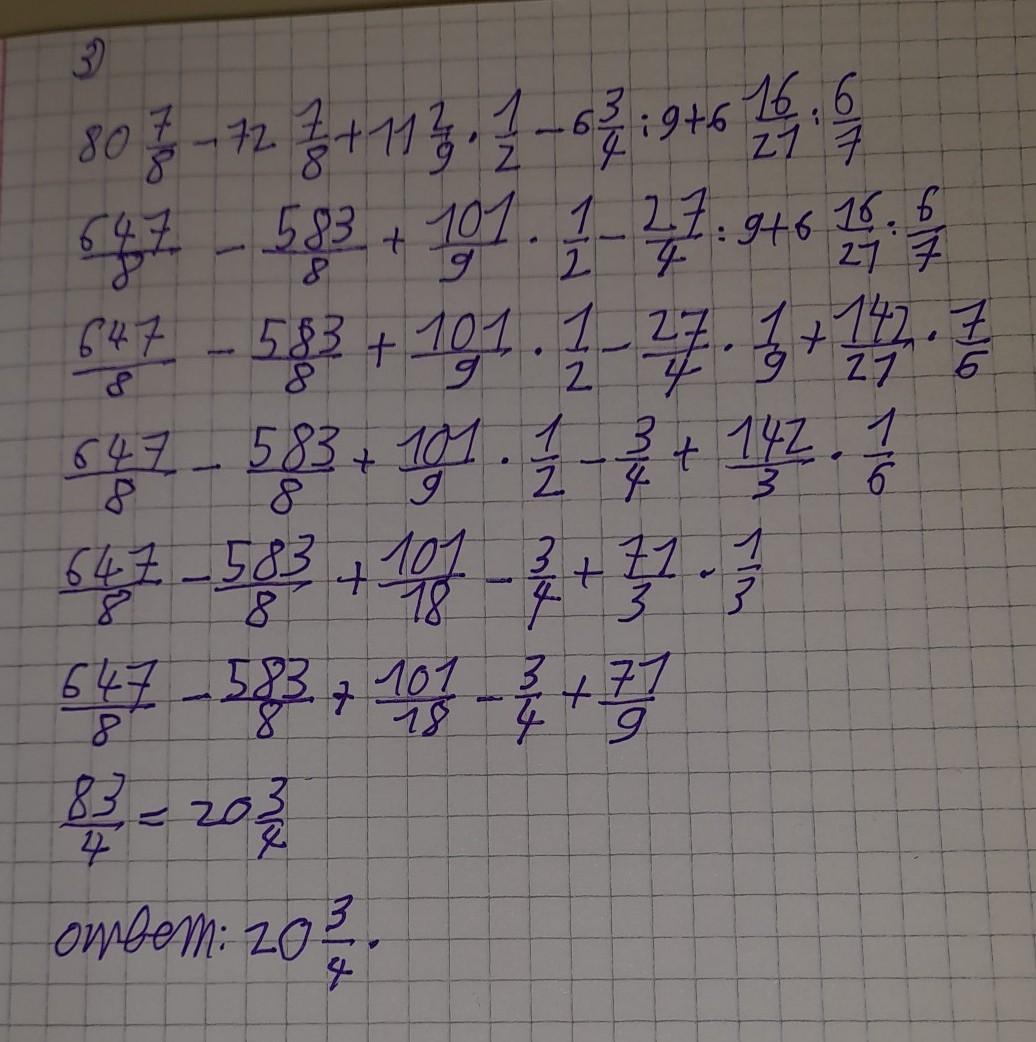 3)
80 7/8 - 72 7/8 + 11 2/9 · 1/2 - 6 3/4 : 9 + 6 16/21 : 6/7
647/8 - 583/8 + 101/9 · 1/2 - 27/4 : 9 + 6 16/21 : 6/7
647/8 - 583/8 + 101/9 · 1/2 - 27/4 · 1/9 + 142/21 · 7/6
647/8 - 583/8 + 101/9 · 1/2 - 3/4 + 142/3 · 1/6
647/8 - 583/8 + 101/18 - 3/4 + 71/3 · 1/3
647/8 - 583/8 + 101/18 - 3/4 + 71/9
83/4 = 20 3/4
ответ: 20 3/4.